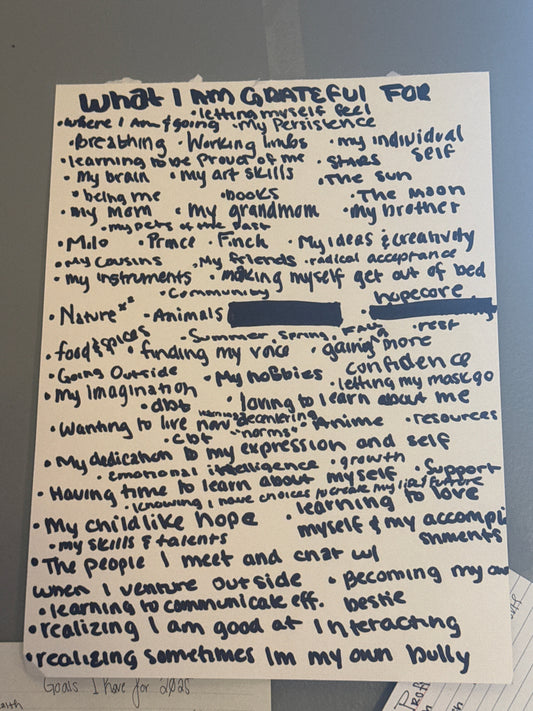 What I AM GRATEFUL FOR
• letting myself feel
• Where I Am & going • My Persistence
• breathing • Working limbs • my individual self
• learning to be Proud of me • STARS
• My brain • my art skills • The sun
• being me • books • The Moon
• my mom • my grandmom • My brother
• my pets of the past
• Milo • Prince • Finch • My ideas & creativity
• My cousins • My friends • radical acceptance
• my instruments • making myself get out of bed
• Community • hopecore
• Nature • Animals
• Summer, Spring, Fall • rest
• food & spices • finding my voice • gaining more confidence
• Going Outside • My hobbies • letting my mask go
• My Imagination
• dbt • loving to learn about me
• Wanting to live now • decentering "norms" • Anime • resources
• CBT
• My dedication to my expression and self
• emotional intelligence • growth
• Having time to learn about myself • Support
• knowing I have choices to create my future
• My childlike hope • learning to love myself & my accomplishments
• my skills & talents
• The people I meet and chat w/ when I venture outside • Becoming my own bestie
• learning to communicate eff.
• realizing I am good at Interacting
• realizing sometimes Im my own bully
Goals I have for 2025